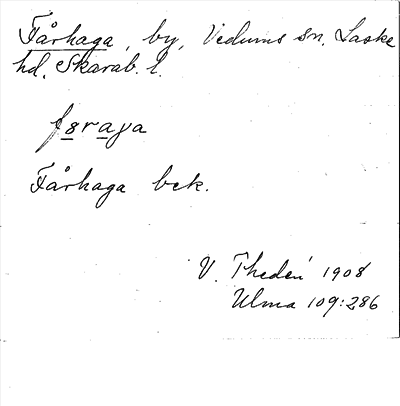 Fårhaga, by, Vedums sn, Laske
hd. Skarab. l.
f8raya
Fårhaga bek.
V. Thedén 1908
Ulma 109:286